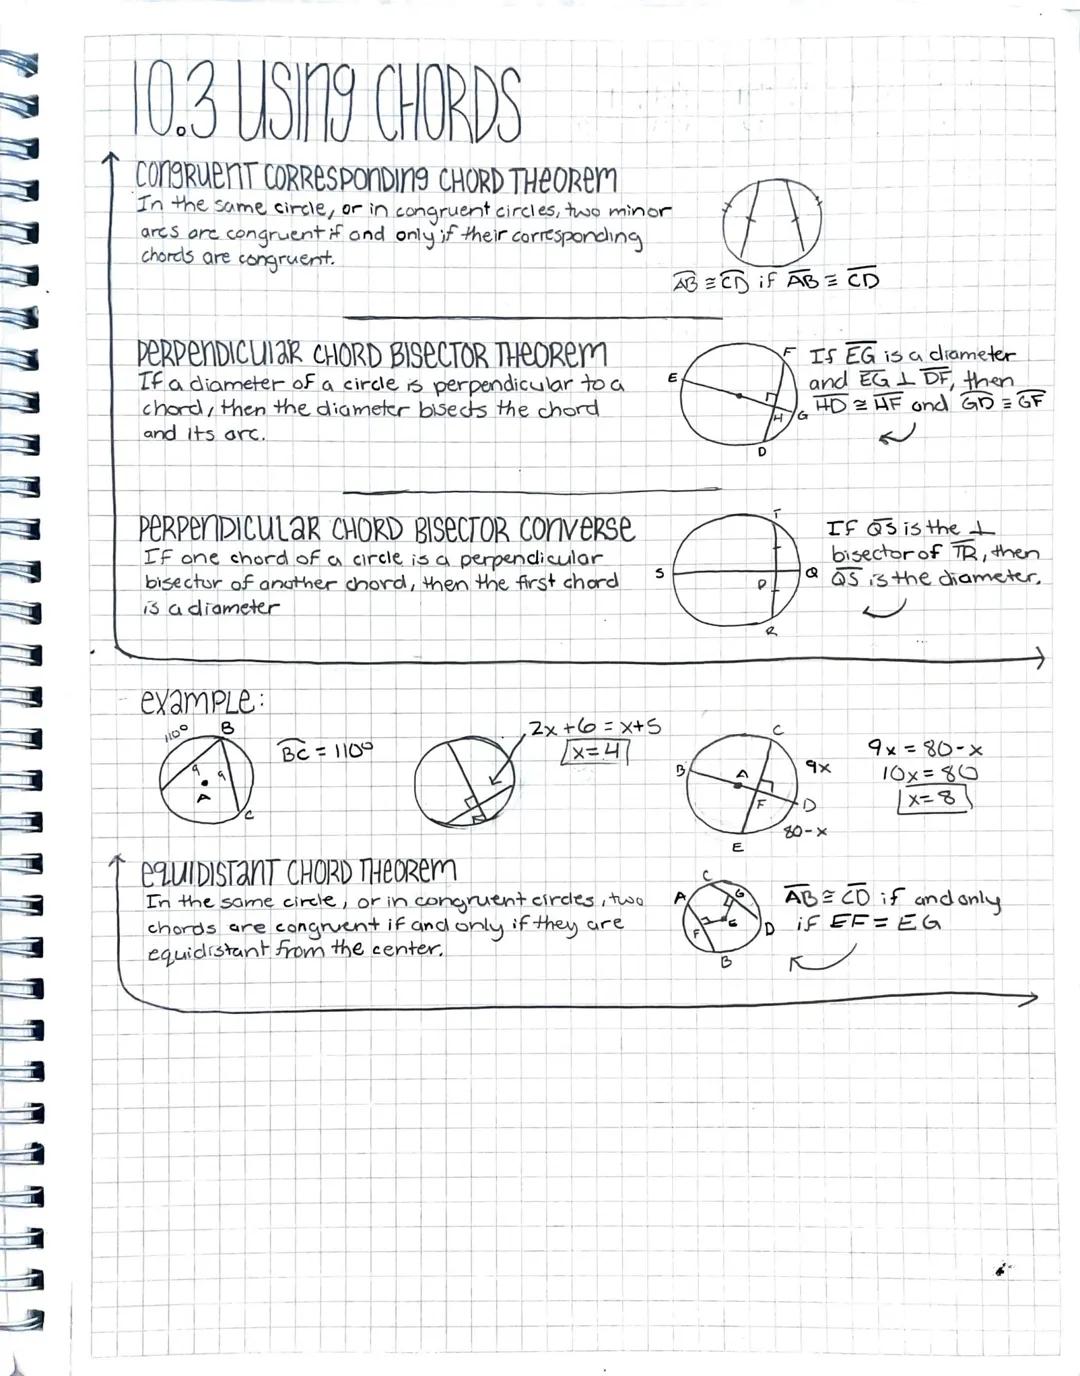 10.3 USING CHORDS
CONGRUENT CORRESPONDING CHORD THEOREM
In the same circle, or in congruent circles, two minor
arcs are congruent if and only if their corresponding
chords are congruent.
AB ≅ CD if AB ≅ CD
PERPENDICULAR CHORD BISECTOR THEOREM
If a diameter of a circle is perpendicular to a
chord, then the diameter bisects the chord
and its arc.
E
F
H
G
D
If EG is a diameter
and EG ⊥ DF, then
HD ≅ HF and GD ≅ GF
PERPENDICULAR CHORD BISECTOR CONVERSE
If one chord of a circle is a perpendicular
bisector of another chord, then the first chord
is a diameter
T
S
P
Q
R
If QS is the ⊥
bisector of TR, then
QS is the diameter.
example:
110°
B
9
9
A
C
BC = 110°
2x+6 = x+5
x=4
C
B
A
9x
F
D
80-x
E
9x = 80-x
10x = 80
x=8
EQUIDISTANT CHORD THEOREM
In the same circle, or in congruent circles, two
chords are congruent if and only if they are
equidistant from the center.
C
A
G
E
F
D
B
AB ≅ CD if and only
if EF = EG